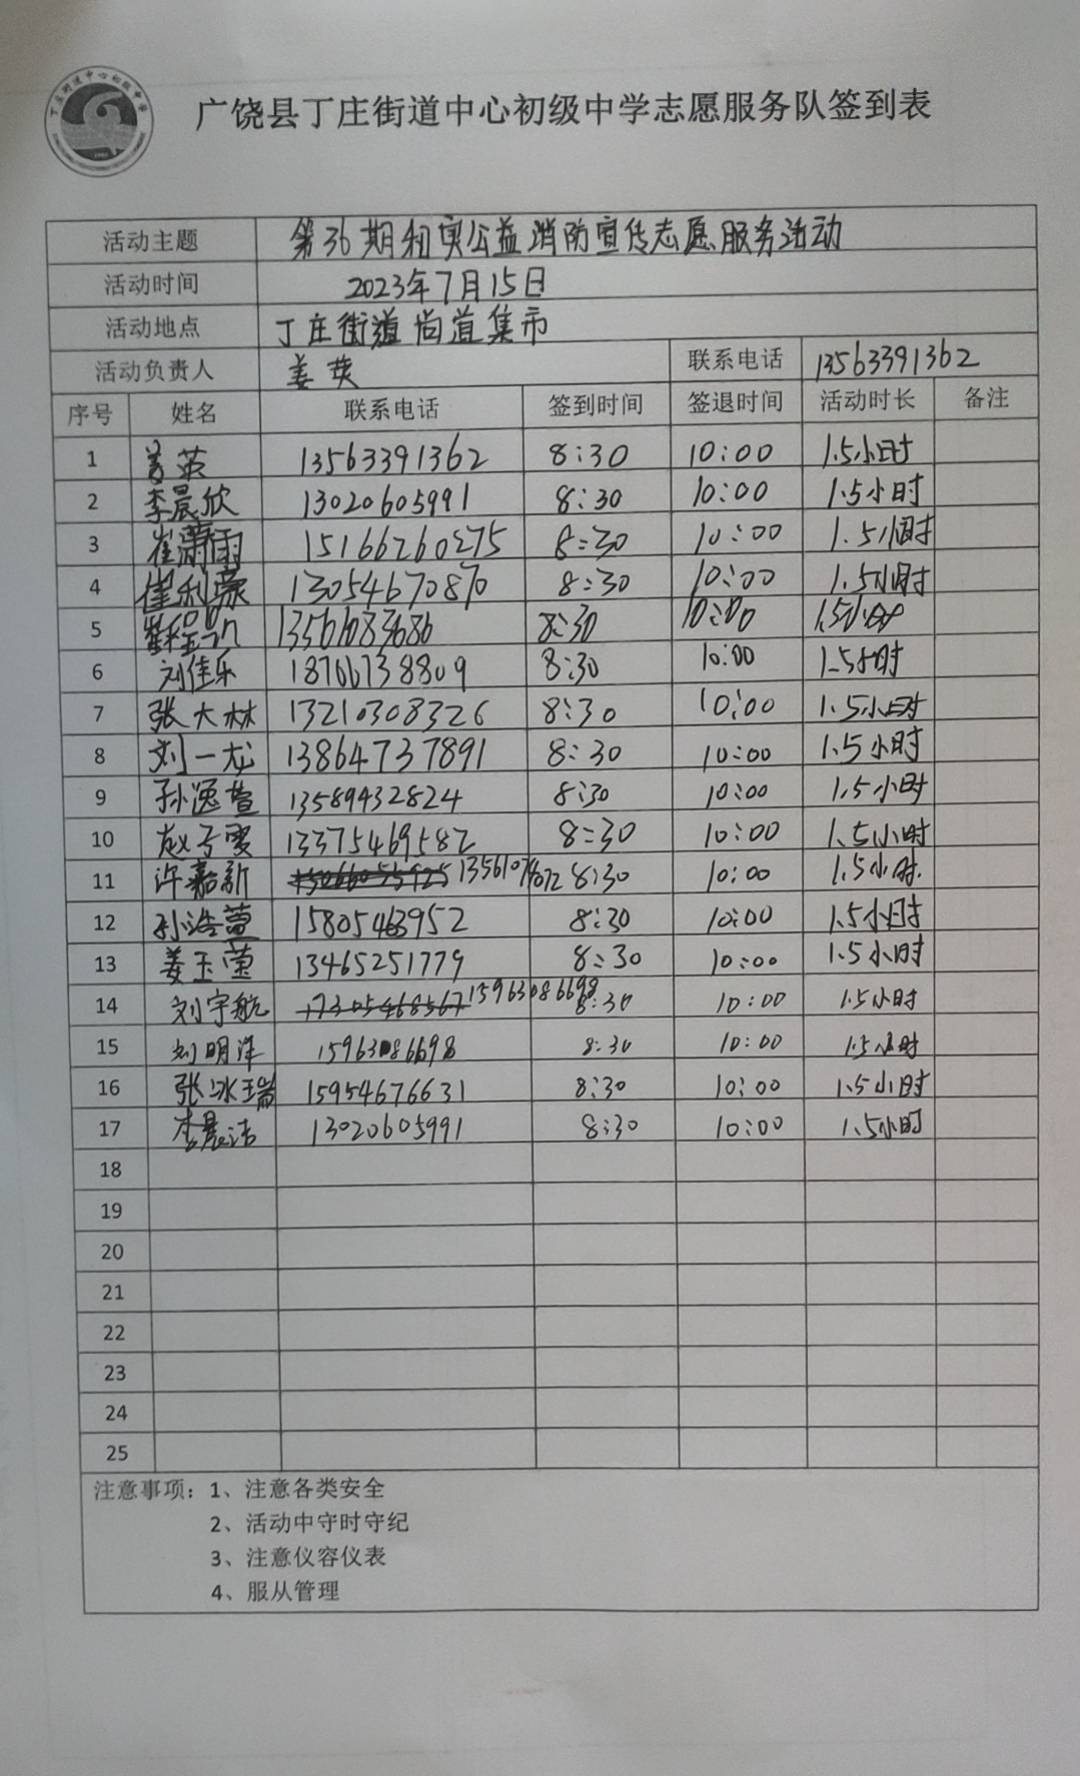 广饶县丁庄街道中心初级中学志愿服务队签到表
活动主题 第36期和奕公益消防宣传志愿服务活动
活动时间 2023年7月15日
活动地点 丁庄街道尚道集市
活动负责人 姜荧 联系电话 13563391362
序号 姓名 联系电话 签到时间 签退时间 活动时长 备注
1 姜荧 13563391362 8:30 10:00 1.5小时
2 李晨欣 13020605991 8:30 10:00 1.5小时
3 崔潇雨 15166260275 8:30 10:00 1.5小时
4 崔利蒙 13054670870 8:30 10:00 1.5小时
5 8:30 10:00 1.5小时
6 刘佳乐 18766738809 8:30 10:00 1.5小时
7 张大林 13210308326 8:30 10:00 1.5小时
8 刘一龙 13864737891 8:30 10:00 1.5小时
9 孙逸萱 13589432824 8:30 10:00 1.5小时
10 赵子雯 13375469582 8:30 10:00 1.5小时
11 许嘉新 8:30 10:00 1.5小时.
12 孙浩萱 15805463952 8:30 10:00 1.5小时
13 姜玉莹 13465251779 8:30 10:00 1.5小时
14 刘宇航 17305468567 15963086698 8:30 10:00 1.5小时
15 刘明洋 15963086698 8:30 10:00 1.5小时
16 张冰瑞 15954676631 8:30 10:00 1.5小时
17 李晨洁 13020605991 8:30 10:00 1.5小时
18
19
20
21
22
23
24
25
注意事项：1、注意各类安全
2、活动中守时守纪
3、注意仪容仪表
4、服从管理